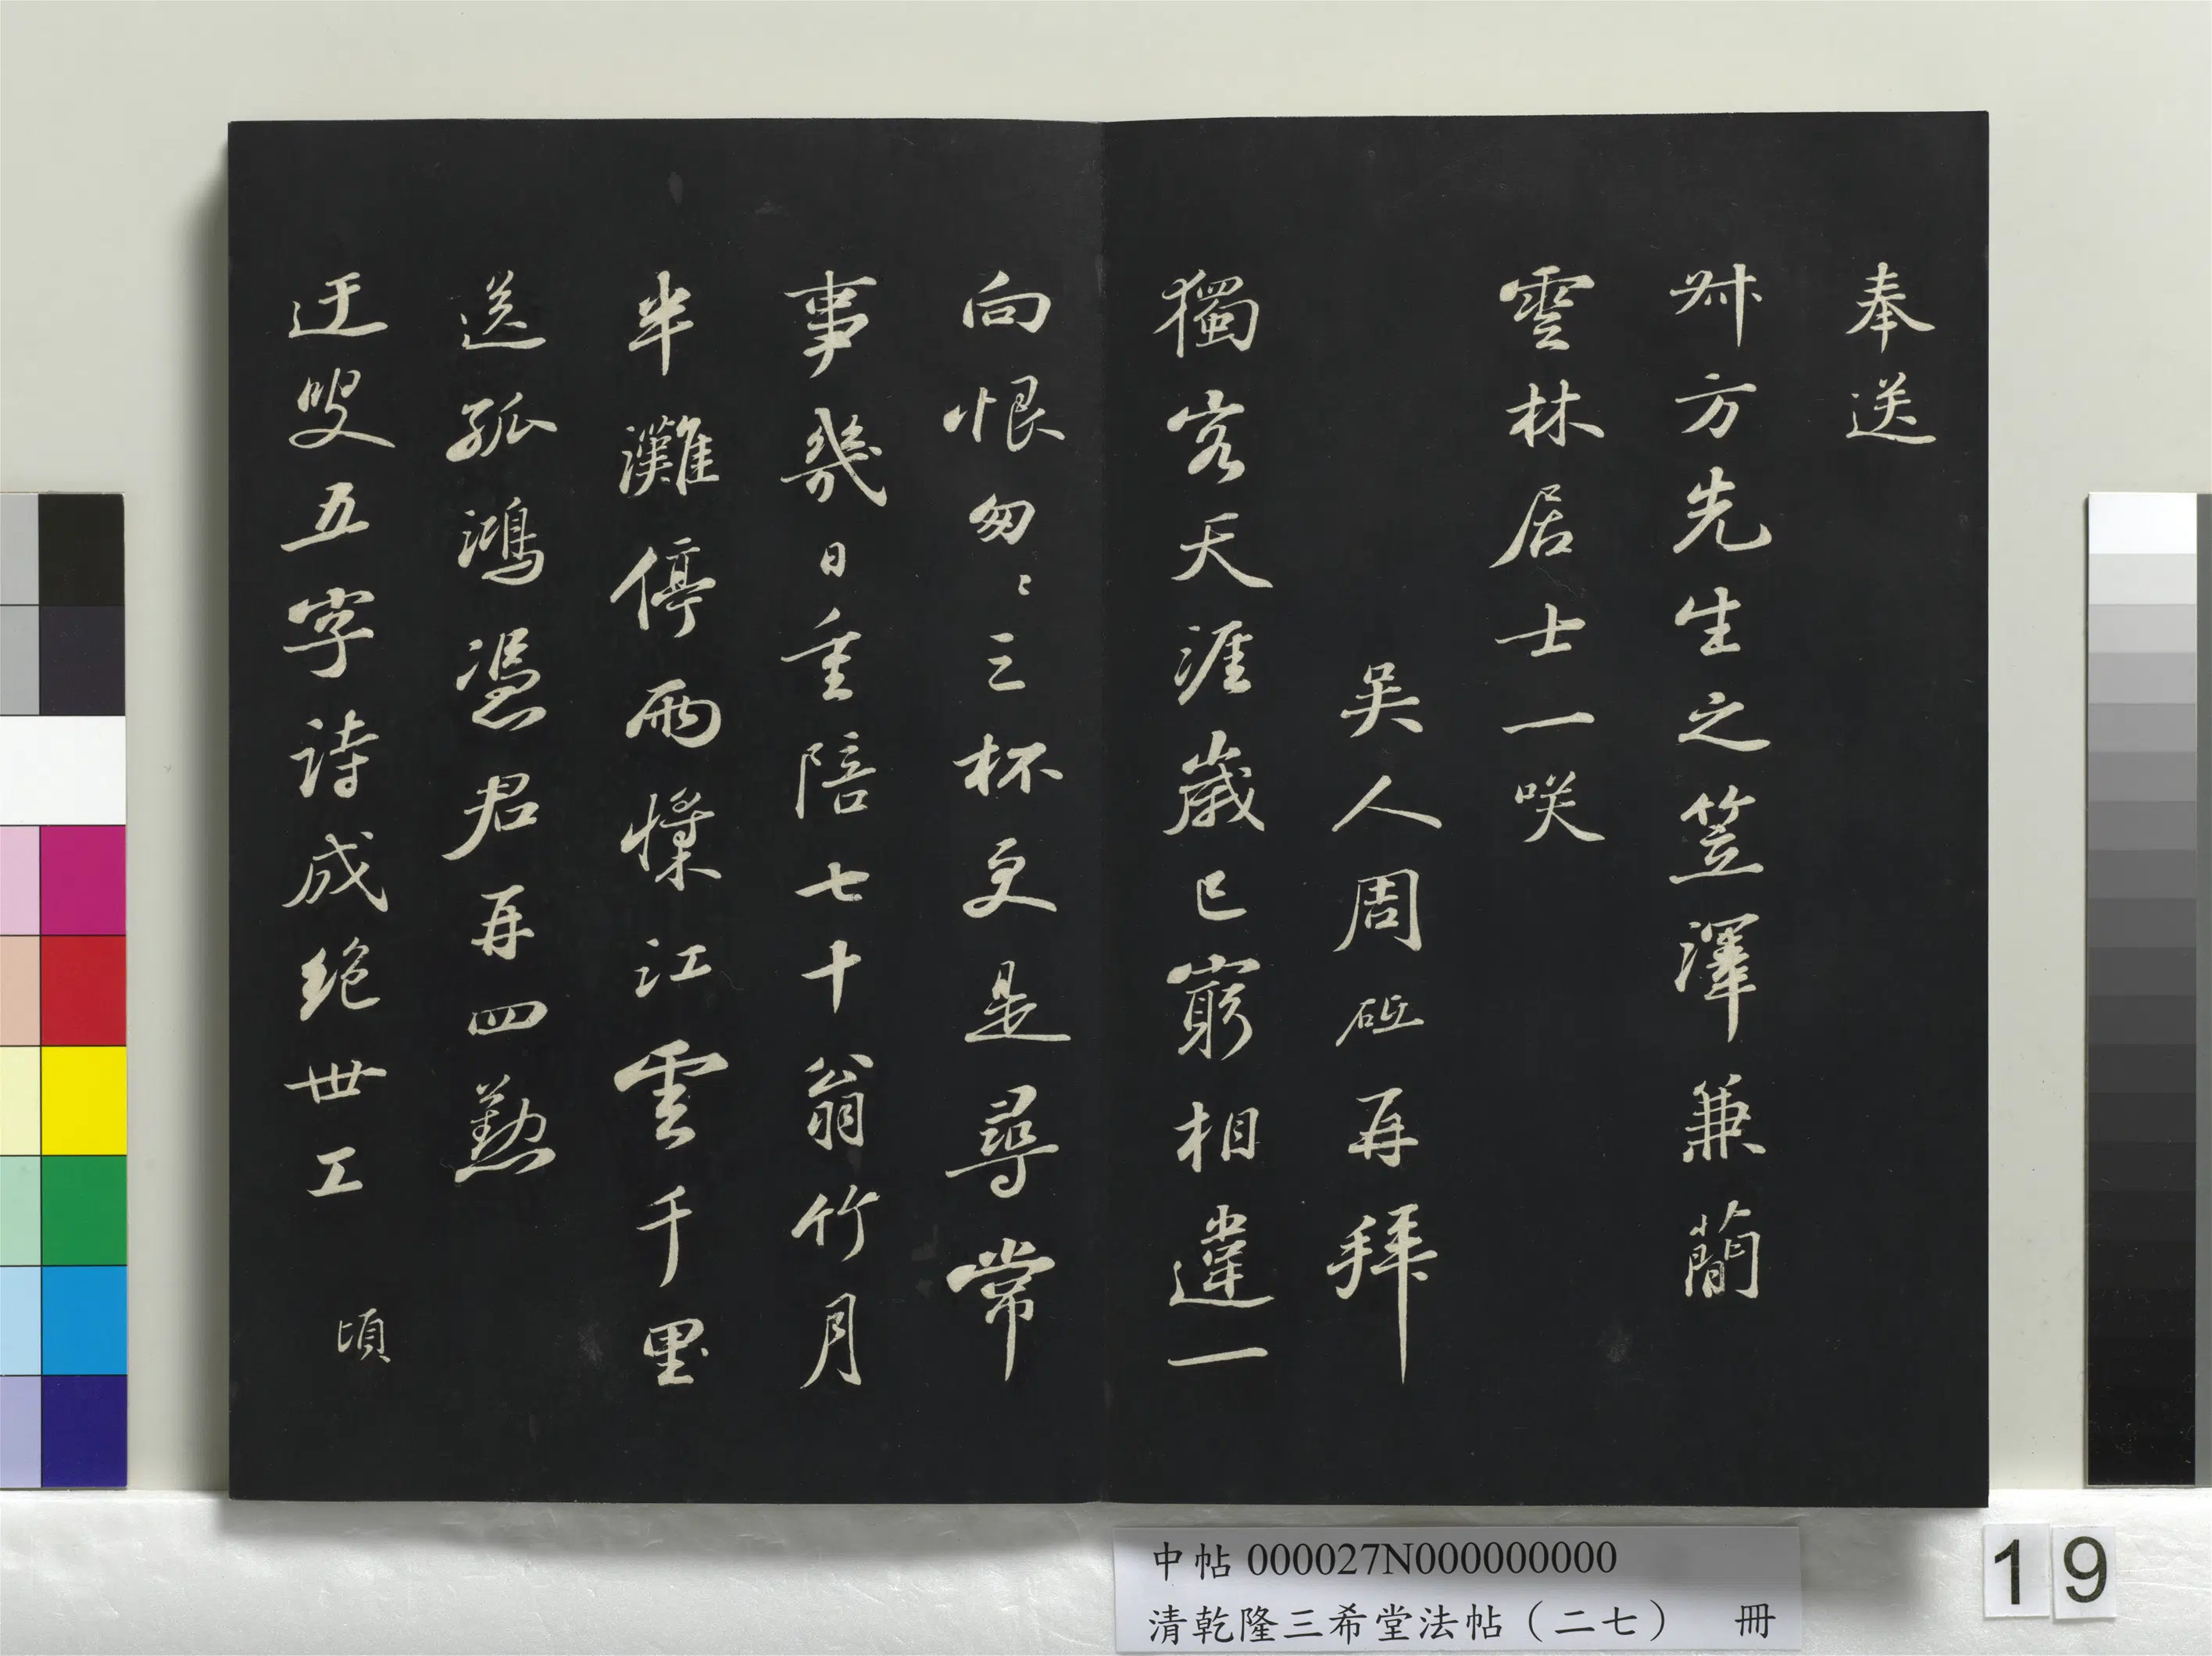 奉送
叔方先生之笠澤兼簡
雲林居士一咲
吳人周砥再拜
獨客天涯歲已窮相違一
向恨匆〻三杯更是尋常
事幾日重陪七十翁竹月
半灘停雨慄江雲千里
送孤鴻憑君再四懃
迂叟五字詩成絕世工 頃
中帖000027N000000000
清乾隆三希堂法帖(二七) 冊
19